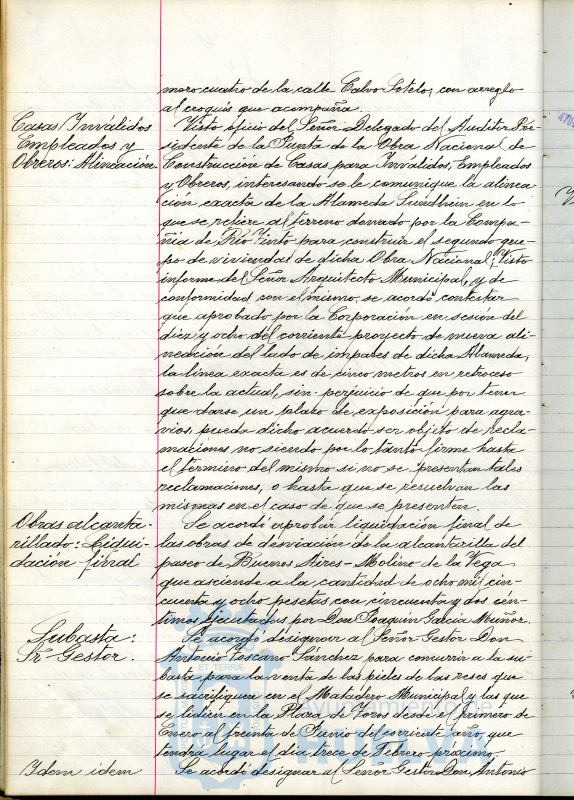 mero cuatro de la calle Calvo Sotelo, con arreglo
al croquis que acompaña.
Casas Inválidos
Empleados y
Obreros: Alineación
Visto oficio del Señor Delegado del Auditor Pre-
sidente de la Junta de la Obra Nacional de
Construcción de Casas para Inválidos, Empleados
y Obreros, interesando se le comunique la alinea-
ción exacta de la Alameda Sundhein en lo
que se refiere al terreno donado por la Compa-
ñia de Rio Tinto para construir el segundo gru-
po de viviendas de dicha Obra Nacional; Visto
informe del Señor Arquitecto Municipal, y de
conformidad con el mismo se acordó contestar
que aprobado por la Corporación en sesión del
diez y ocho del corriente proyecto de nueva ali-
neación del lado de impares de dicha Alameda,
la linea exacta es de cinco metros en retroceso
sobre la actual, sin perjuicio de que por tener
que darse un plazo de exposición para agra-
vios, pueda dicho acuerdo ser objeto de recla-
maciones no siendo por lo tanto firme hasta
el termino del mismo si no se presentan tales
reclamaciones, o hasta que se resuelvan las
mismas en el caso de que se presenten.
Obras alcanta-
rillado: Liqui-
dación final
Se acordó aprobar liquidación final de
las obras de desviación de la alcantarilla del
paseo de Buenos Aires - Molino de la Vega
que asciende a la cantidad de ocho mil cin-
cuenta y ocho pesetas con cincuenta y dos cén-
timos ejecutados por Don Joaquin Garcia Muñoz.
Subasta:
Sr Gestor.
Se acordó designar al Señor Gestor Don
Antonio Toscano Sánchez para concurrir a la su-
basta para la venta de las pieles de las reses que
se sacrifiquen en el Matadero Municipal y las que
se lidien en la Plaza de Toros desde el primero de
Enero al treinta de Junio del corriente año, que
tendrá lugar el dia trece de Febrero próximo.
Idem idem
Se acordó designar al Señor Gestor Don Antonio
ET TERRÆ
Ayuntamiento de